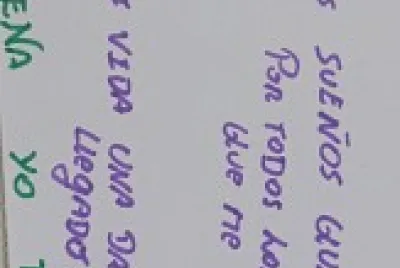 S SUEÑOS QU
POR TODOS LO
QUE ME
VIDA UNA DA
LLEGADO
ENA YO T